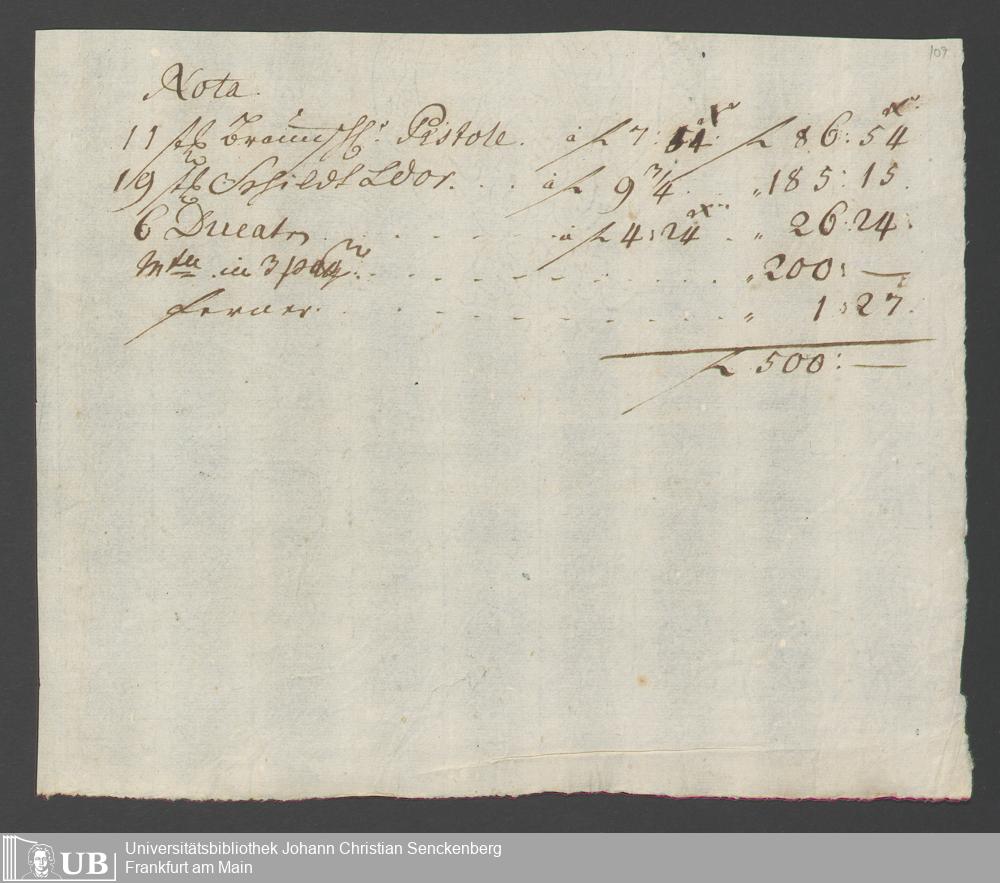 109
Nota.
11 stk Braunschw. Pistole. à f 7: 54 xr. f 86: 54 xr.
19 stk Schildt Ldor. . . à f 9 3/4 . . „ 185: 15.
6 Ducaten . . . . . à f 4: 24 xr. . „ 26: 24.
in 3 . . . . . . . „ 200: —
ferner. . . . . . . . „ 1: 27.
f 500: —
UB Universitätsbibliothek Johann Christian Senckenberg
Frankfurt am Main